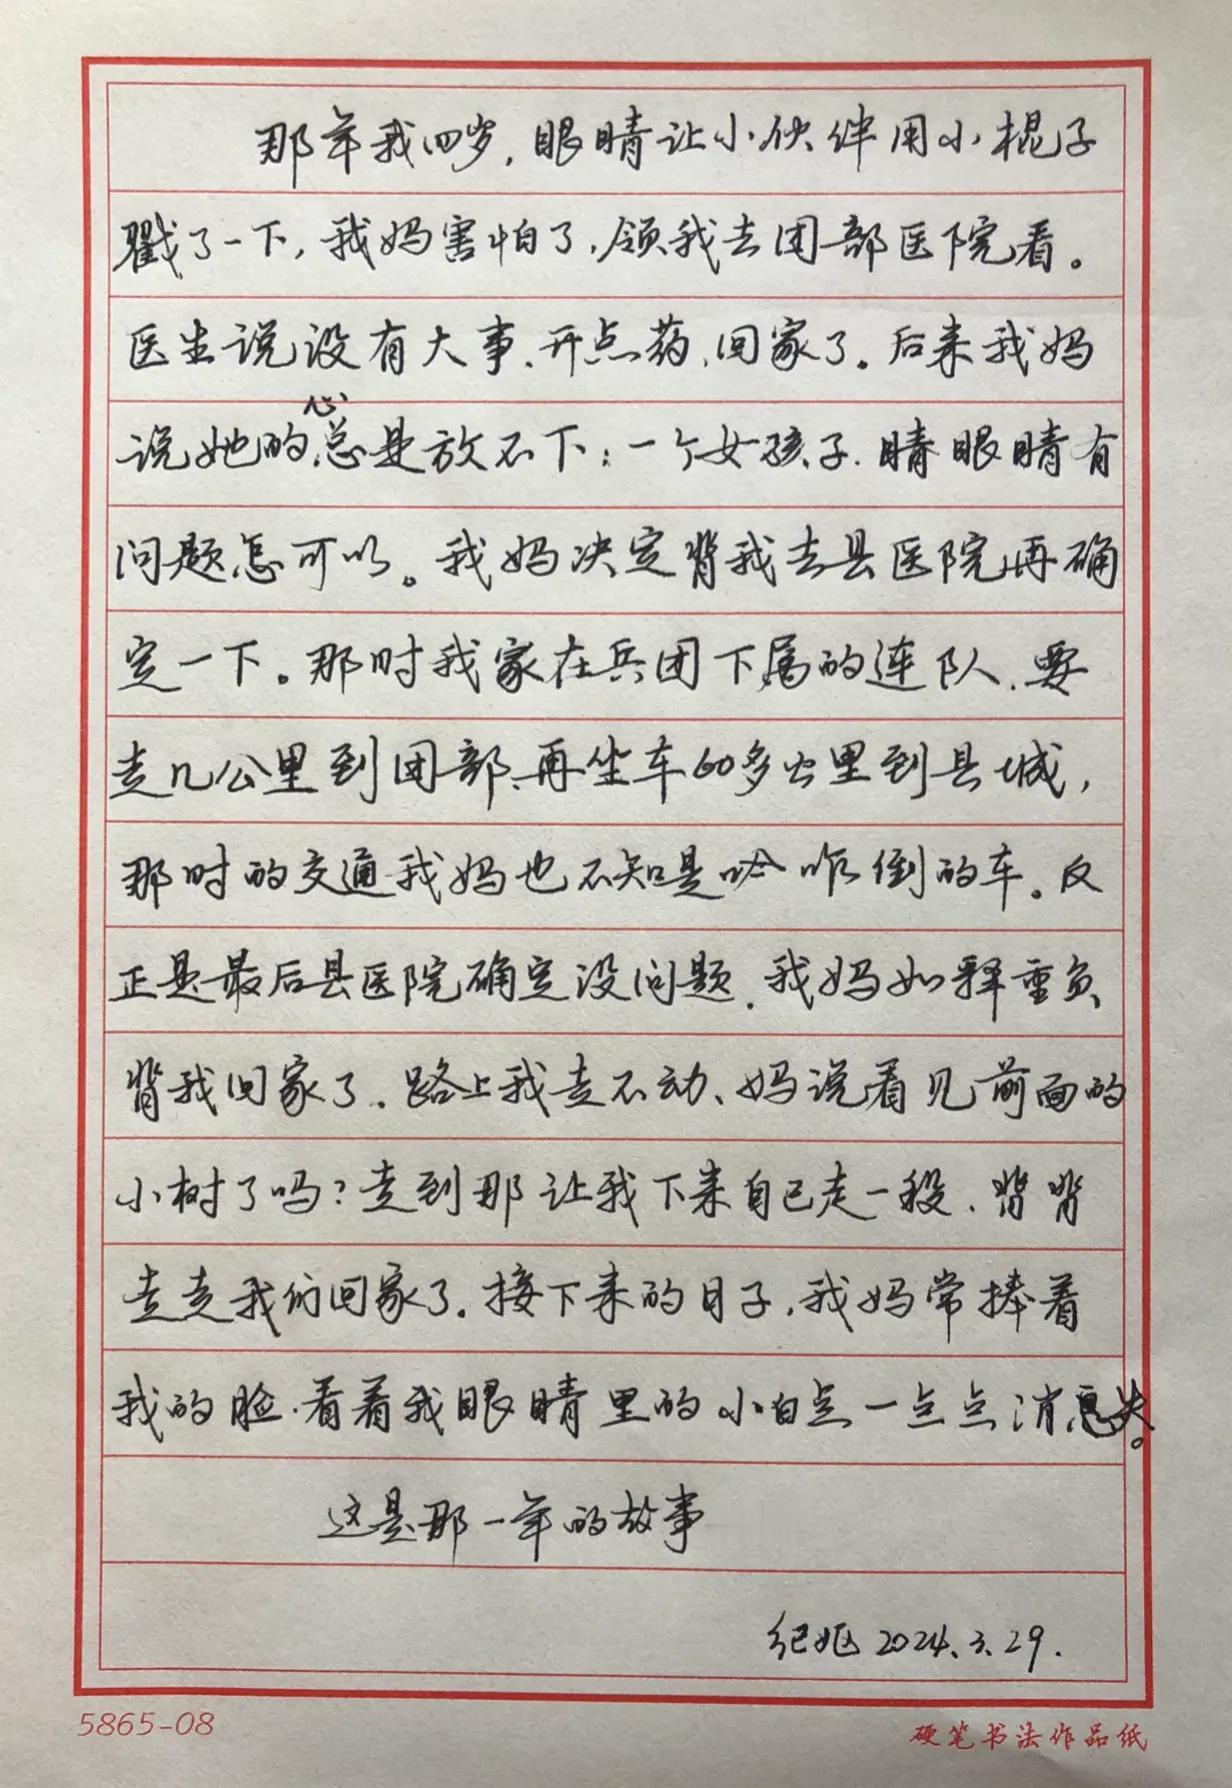 那年我四岁，眼睛让小伙伴用小棍子
戳了一下，我妈害怕了，领我去团部医院看。
医生说没有大事、开点药、回家了。后来我妈
说她的心总是放不下：一个女孩子、睛眼睛有
问题怎可以。我妈决定背我去县医院再确
定一下。那时我家在兵团下属的连队、要
走几公里到团部、再坐车60多公里到县城，
那时的交通我妈也不知是咋倒的车。反
正是最后县医院确定没问题、我妈如释重负、
背我回家了、路上我走不动、妈说看见前面的
小树了吗？走到那让我下来自己走一段、背背
走走我们回家了。接下来的日子，我妈常捧着
我的脸、看着我眼睛里的小白点一点点消息失。
这是那一年的故事
纪妪 2024.3.29.
5865-08
硬笔书法作品纸